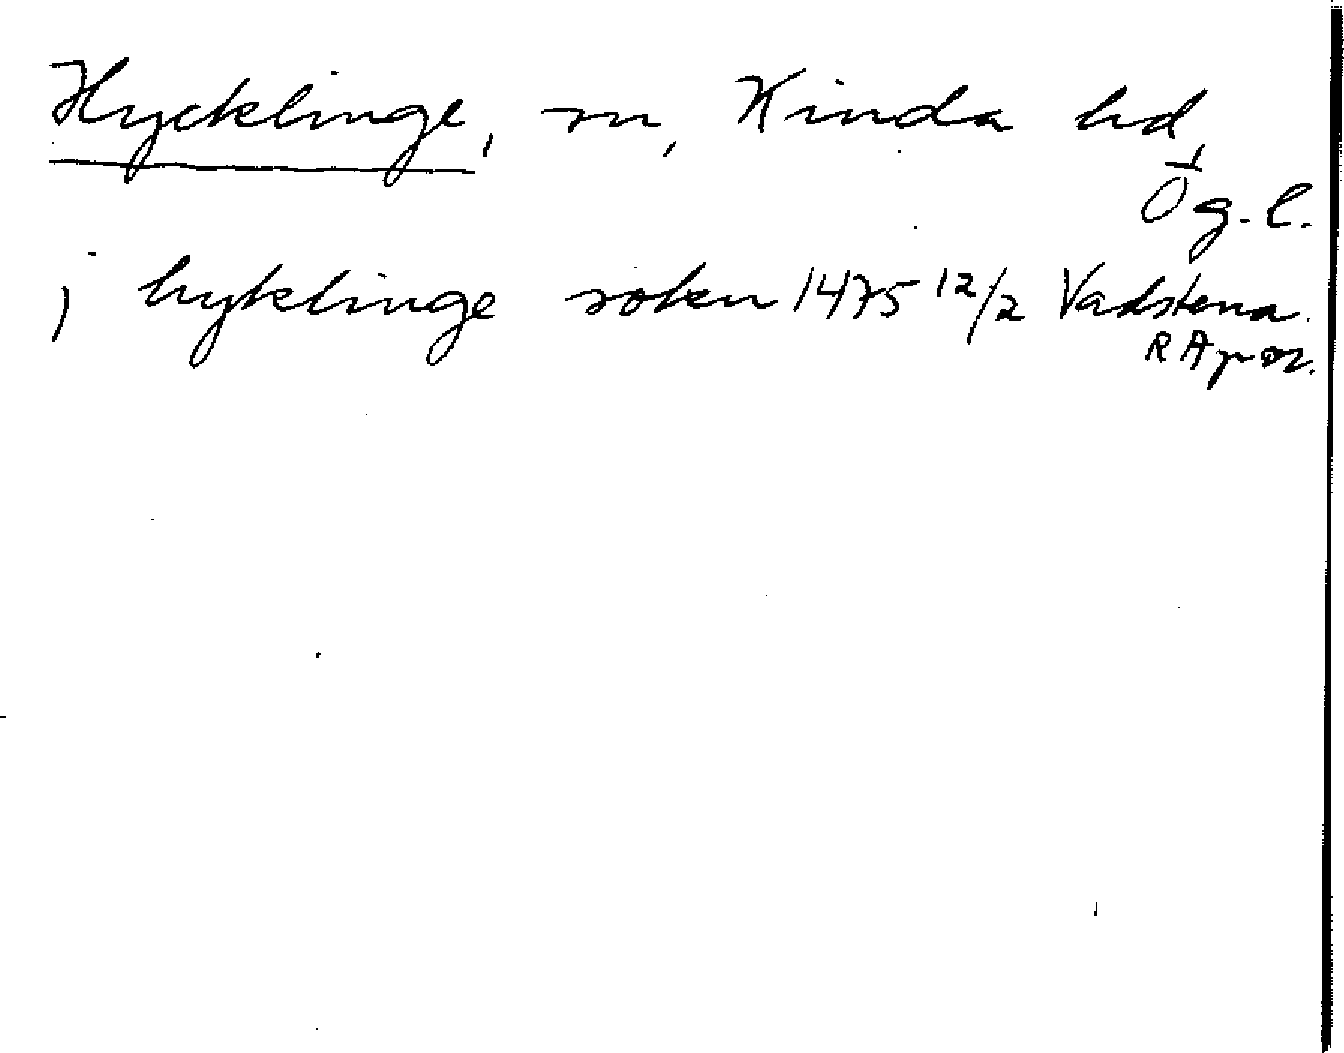 Hycklinge, sn, Kinda hd,
Ög. l.
j hyklinge sokn 1475 12/2 Vadstena.
RA pap or.